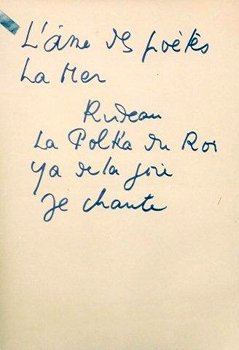 L'âme des poètes
La Mer
Rideau
La Polka du Roi
Y a de la joie
Je chante